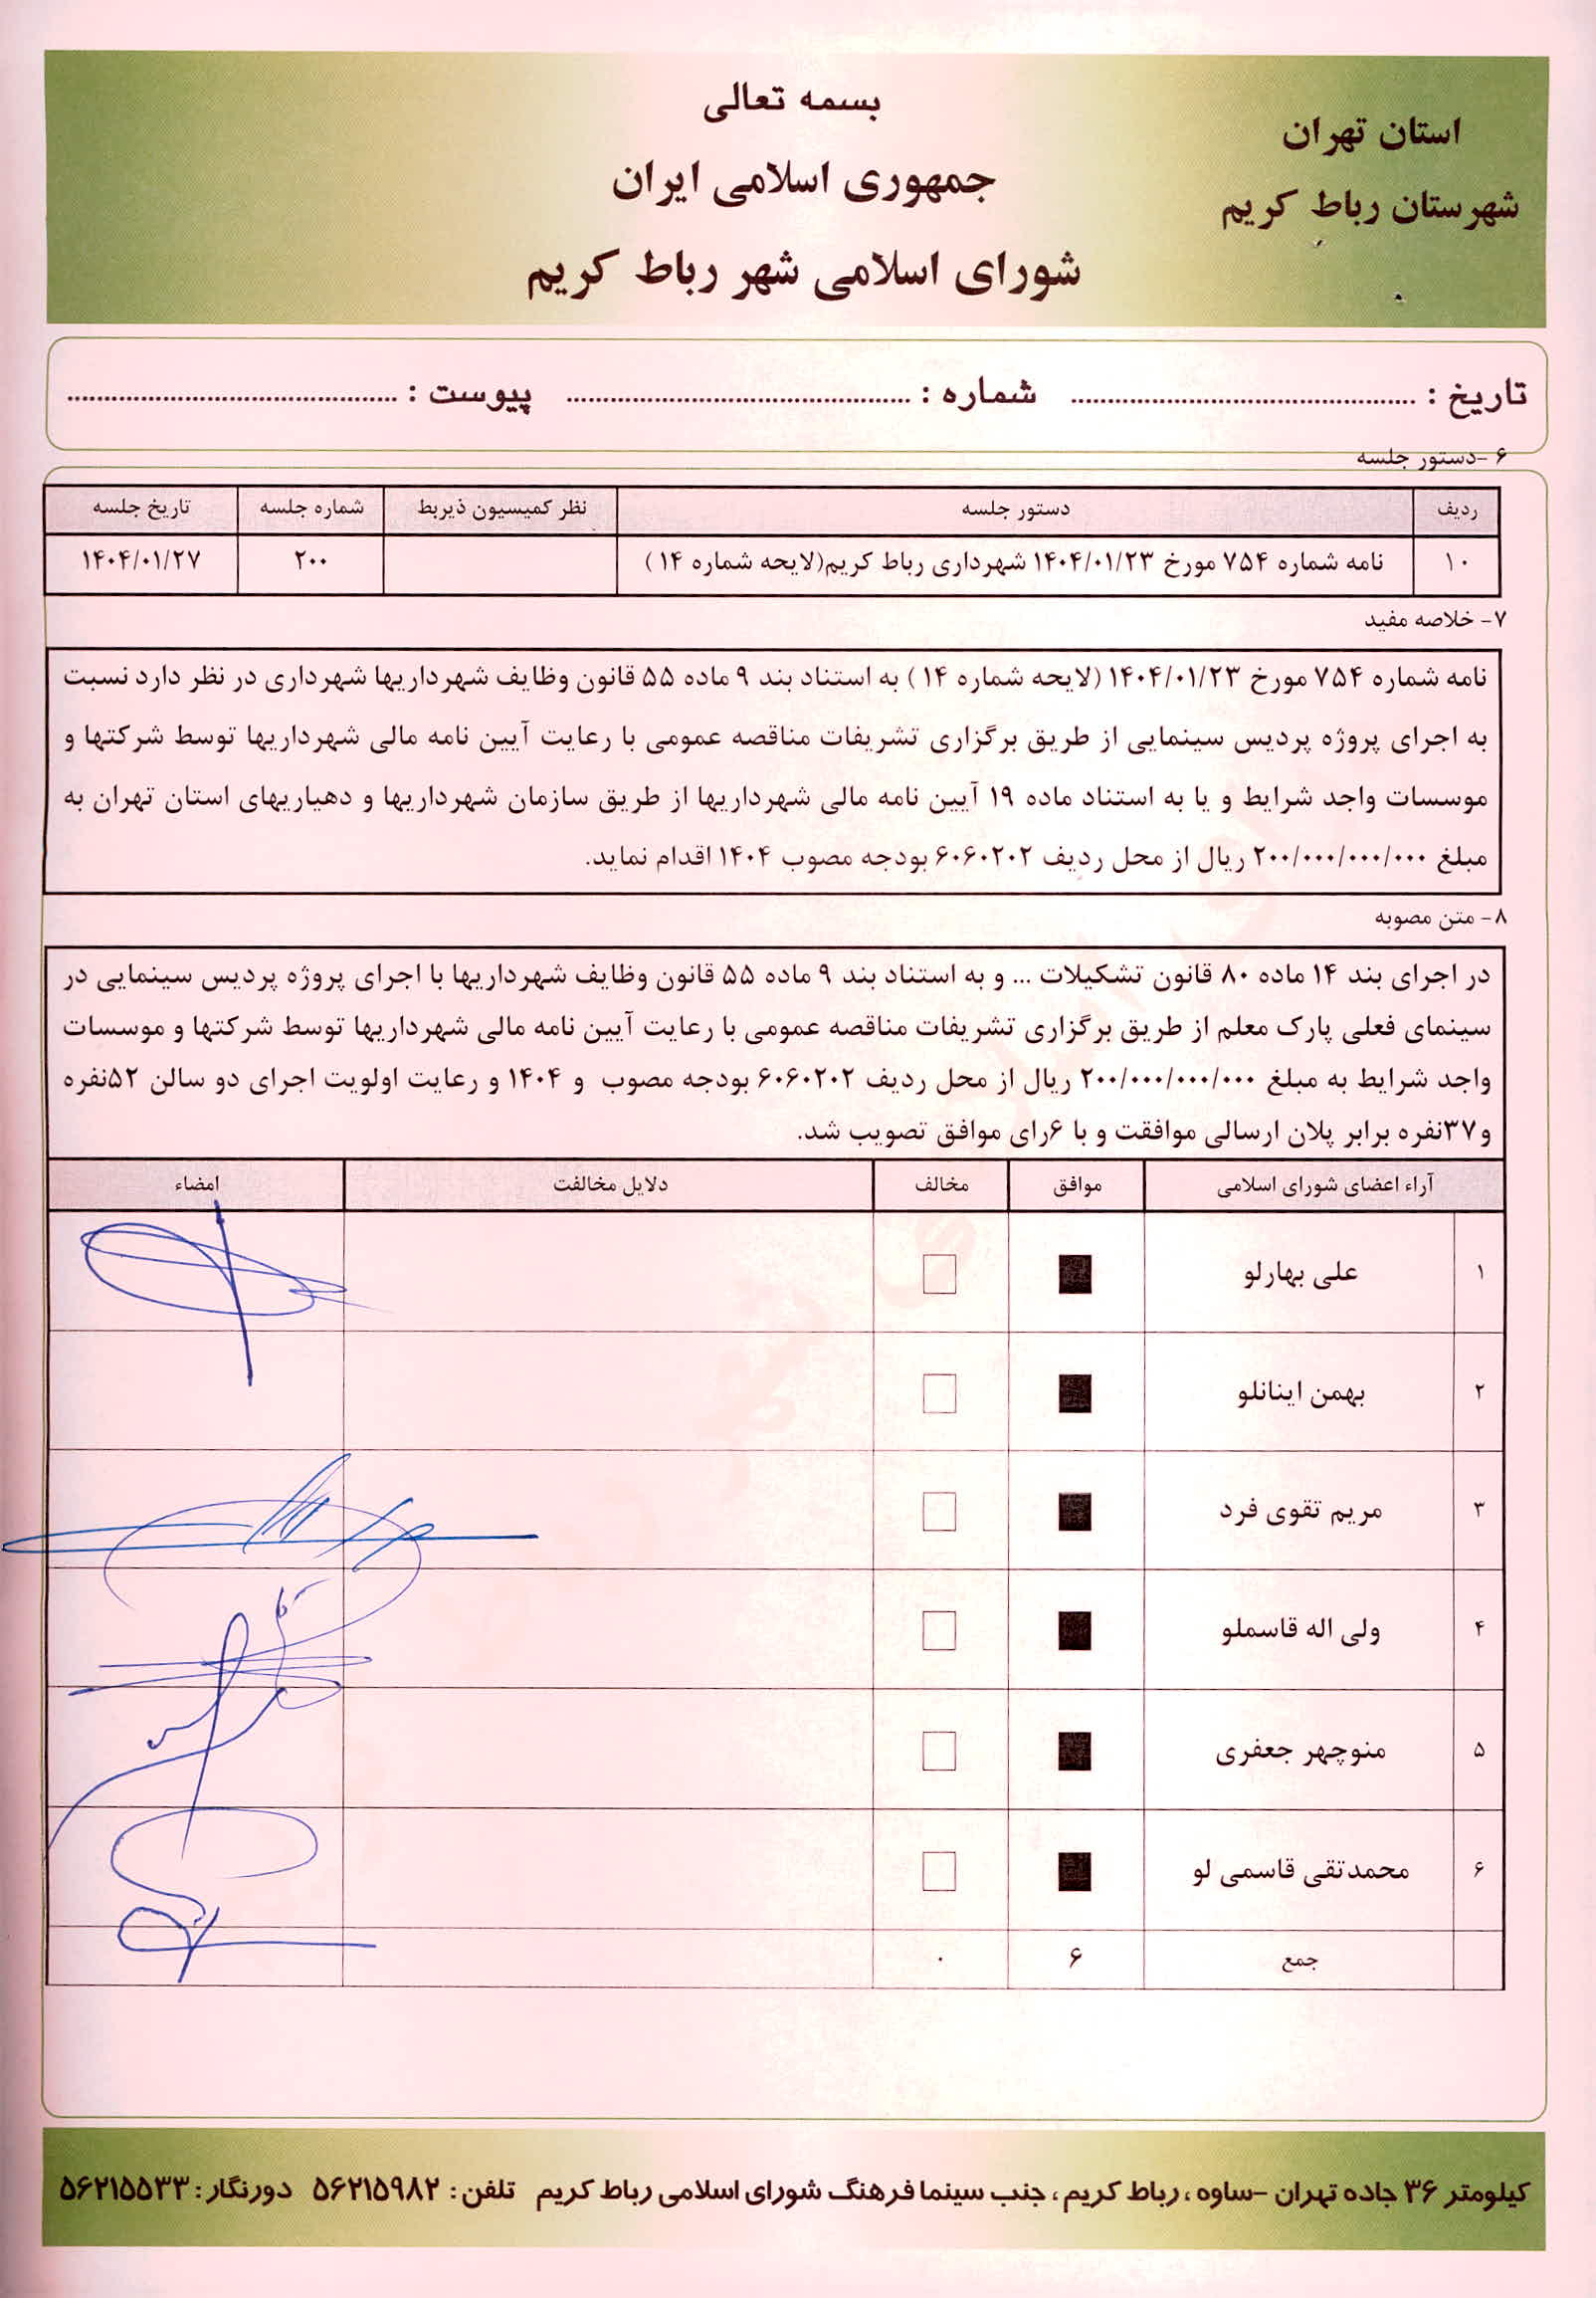 بسمه تعالی
جمهوری اسلامی ایران
شورای اسلامی شهر رباط کریم
استان تهران
شهرستان رباط کریم
تاریخ : ............ شماره : ............ پیوست : ............
۶ -دستور جلسه
ردیف دستور جلسه نظر کمیسیون ذیربط شماره جلسه تاریخ جلسه
۱۰ نامه شماره ۷۵۴ مورخ ۱۴۰۴/۰۱/۲۳ شهرداری رباط کریم(لایحه شماره ۱۴ ) ۲۰۰ ۱۴۰۴/۰۱/۲۷
۷- خلاصه مفید
نامه شماره ۷۵۴ مورخ ۱۴۰۴/۰۱/۲۳ (لایحه شماره ۱۴ ) به استناد بند ۹ ماده ۵۵ قانون وظایف شهرداریها شهرداری در نظر دارد نسبت
به اجرای پروژه پردیس سینمایی از طریق برگزاری تشریفات مناقصه عمومی با رعایت آیین نامه مالی شهرداریها توسط شرکتها و
موسسات واجد شرایط و یا به استناد ماده ۱۹ آیین نامه مالی شهرداریها از طریق سازمان شهرداریها و دهیاریهای استان تهران به
مبلغ ۲۰۰/۰۰۰/۰۰۰/۰۰۰ ریال از محل ردیف ۶۰۶۰۲۰۲ بودجه مصوب ۱۴۰۴ اقدام نماید.
۸- متن مصوبه
در اجرای بند ۱۴ ماده ۸۰ قانون تشکیلات ... و به استناد بند ۹ ماده ۵۵ قانون وظایف شهرداریها با اجرای پروژه پردیس سینمایی در
سینمای فعلی پارک معلم از طریق برگزاری تشریفات مناقصه عمومی با رعایت آیین نامه مالی شهرداریها توسط شرکتها و موسسات
واجد شرایط به مبلغ ۲۰۰/۰۰۰/۰۰۰/۰۰۰ ریال از محل ردیف ۶۰۶۰۲۰۲ بودجه مصوب و ۱۴۰۴ و رعایت اولویت اجرای دو سالن ۵۲نفره
و۳۷نفره برابر پلان ارسالی موافقت و با ۶رای موافق تصویب شد.
آراء اعضای شورای اسلامی موافق مخالف دلایل مخالفت امضاء
۱ علی بهارلو ■ □
۲ بهمن اینانلو ■ □
۳ مریم تقوی فرد ■ □
۴ ولی اله قاسملو ■ □
۵ منوچهر جعفری ■ □
۶ محمدتقی قاسمی لو ■ □
جمع ۶ ۰
کیلومتر ۳۶ جاده تهران -ساوه ، رباط کریم ، جنب سینما فرهنگ شورای اسلامی رباط کریم تلفن : ۵۶۲۱۵۹۸۲ دورنگار : ۵۶۲۱۵۵۳۳